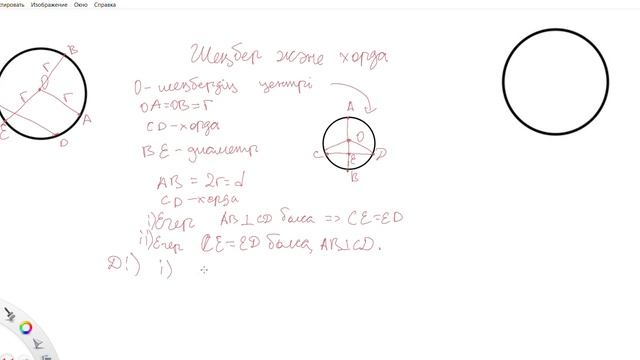 Изображение Окно Справка
Шеңбер және хорда
O - шеңбердің центрі
OA=OB=r
CD - хорда
BE - диаметр
AB = 2r = d
CD - хорда
i) Егер AB⊥CD болса => CE=ED
ii) Егер CE=ED болса, AB⊥CD.
D:) i)
B
r
O
r
r
A
E
D
A
O
C
E
D
B